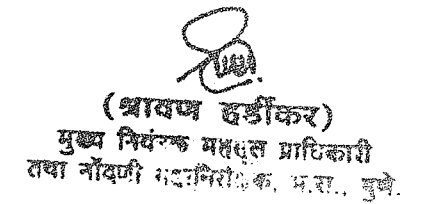 (श्रावण हर्डीकर)
मुख्य नियंत्रक महसूल प्राधिकारी
तथा नोंदणी महानिरीक्षक, म.रा., पुणे.